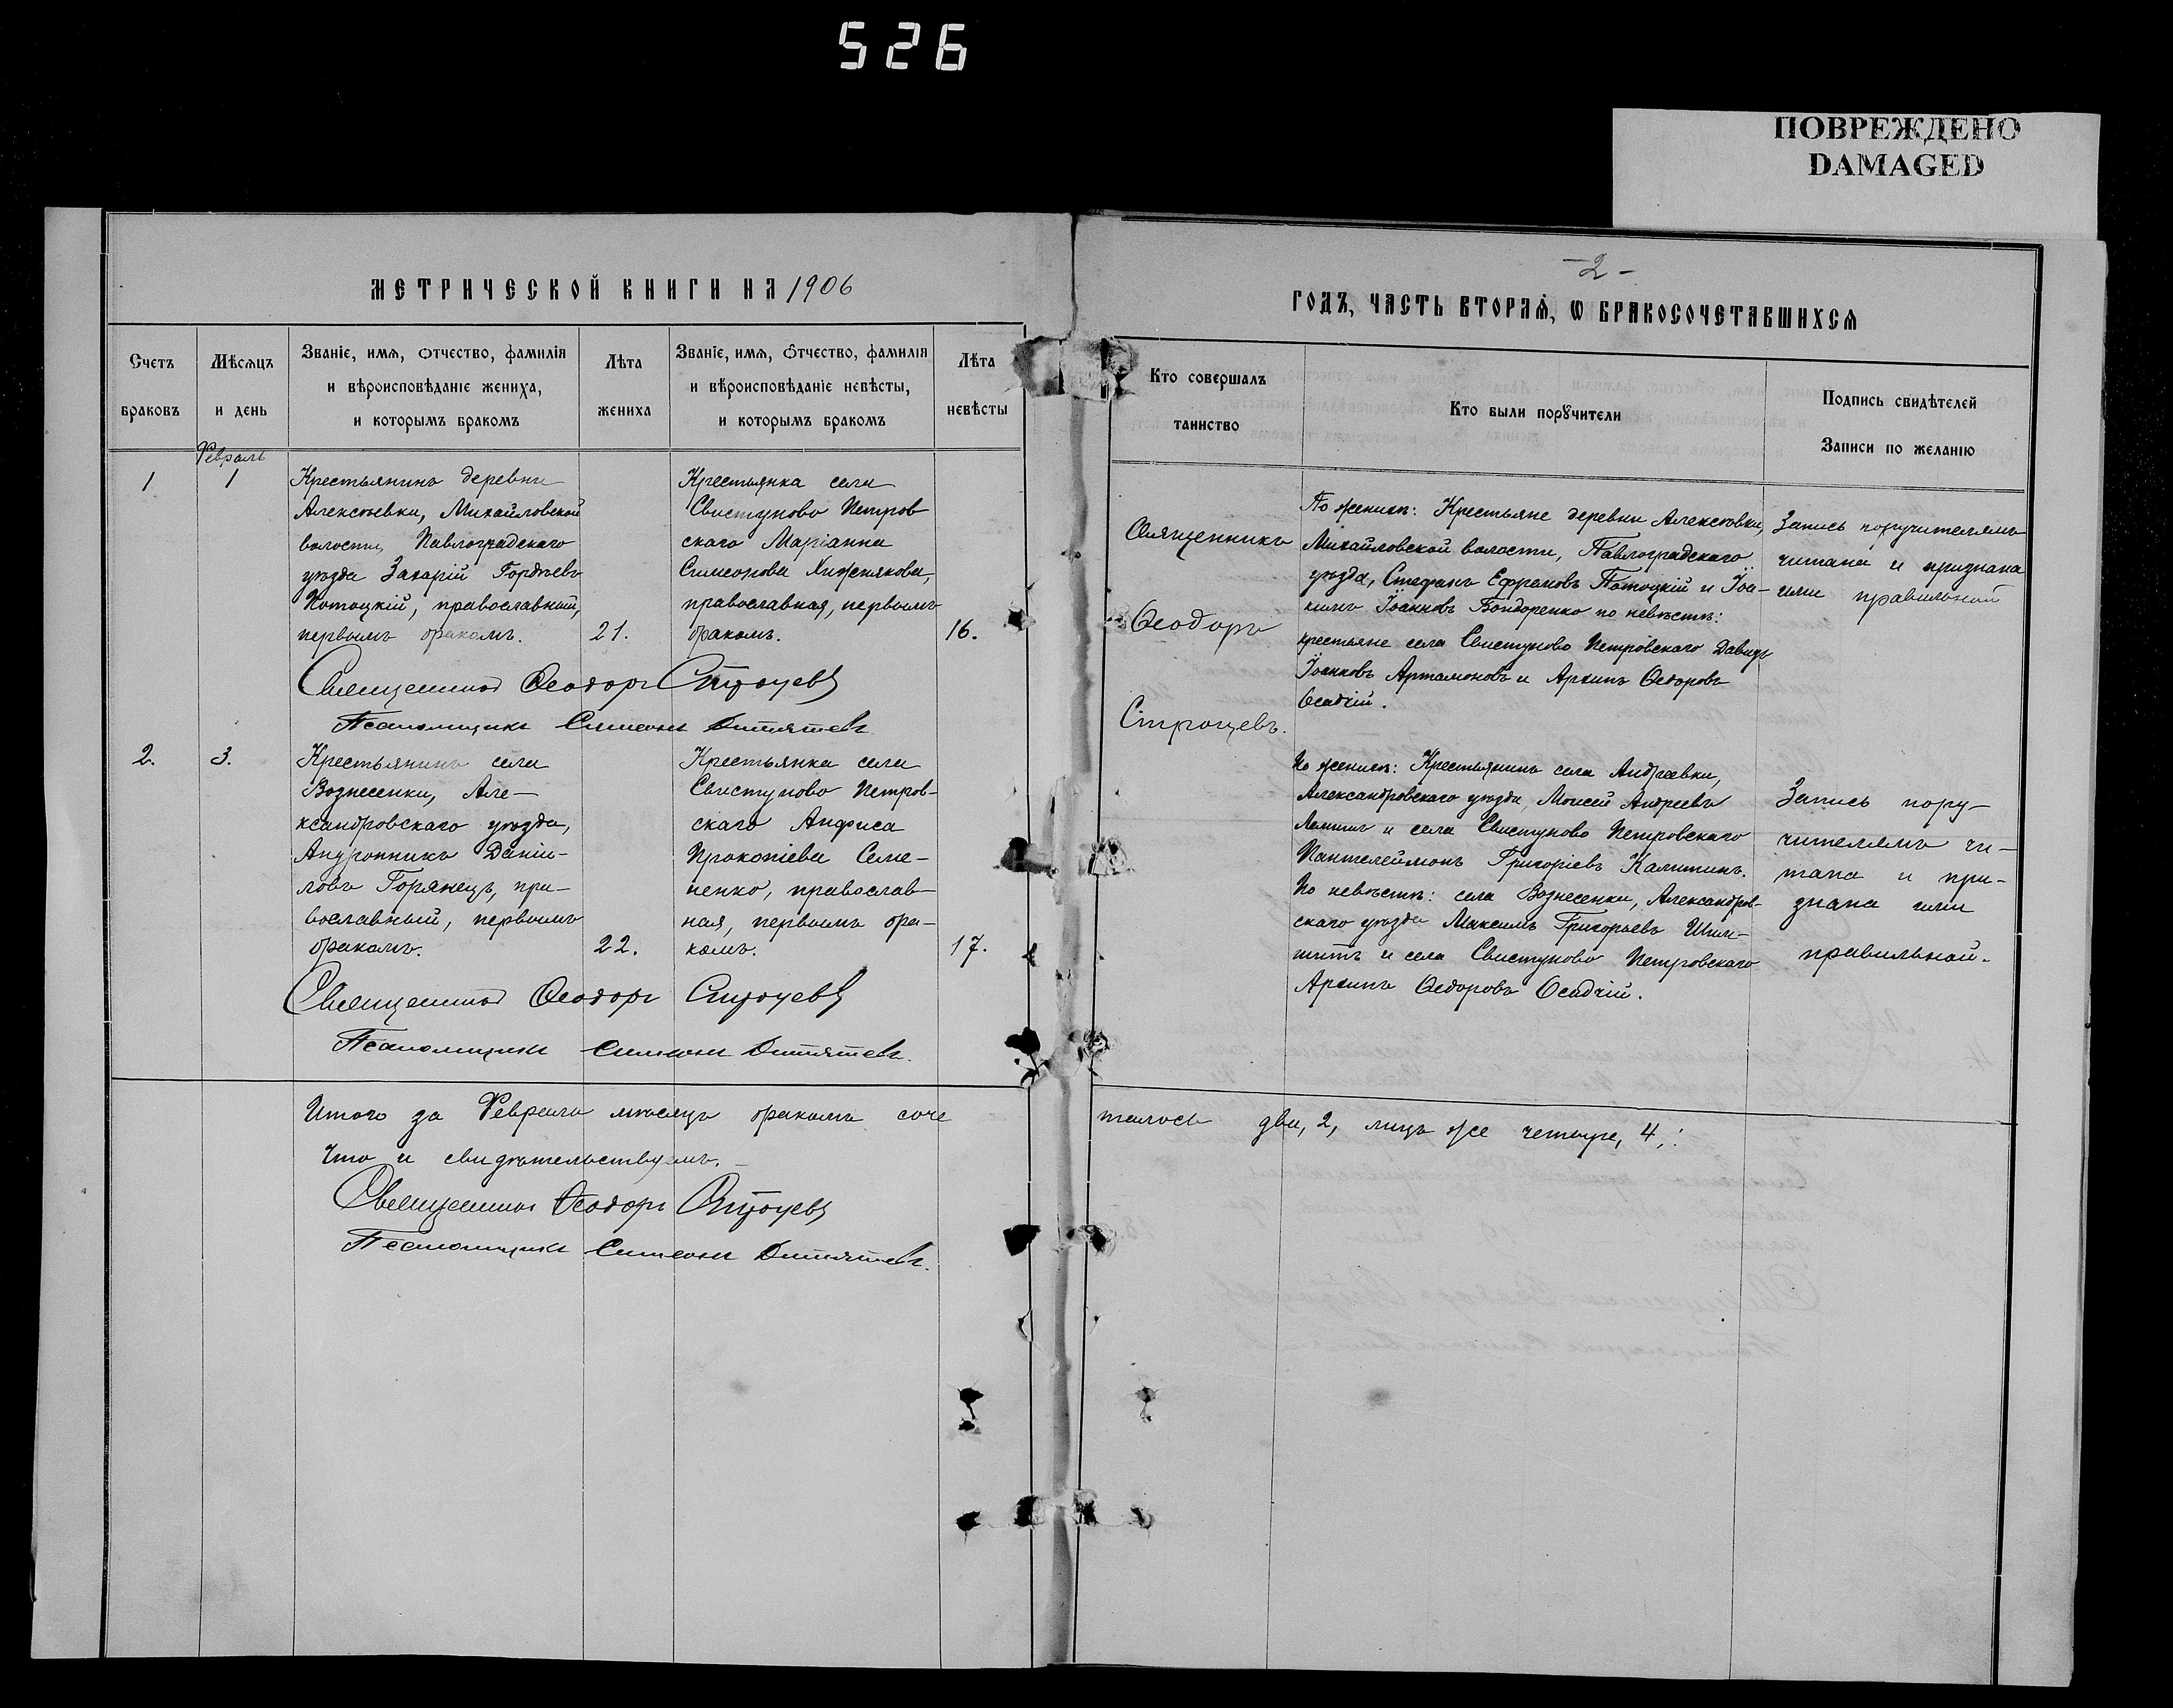 526
ПОВРЕЖДЕНО
DAMAGED
МЕТРИЧЕСКОЙ КНИГИ НА 1906
Счетъ
браковъ
Мѣсяцъ
и день
Званіе, имя, отчество, фамилія
и вѣроисповѣданіе жениха,
и которымъ бракомъ
Лѣта
жениха
Званіе, имя, отчество, фамилія
и вѣроисповѣданіе невѣсты,
и которымъ бракомъ
Лѣта
невѣсты
Февраль
1
1
Крестьянинъ деревни
Алексѣевки, Михайловской
волости, Павлоградскаго
уѣзда Захарій Гордѣевъ
Потоцкій, православный,
первымъ бракомъ.
21.
Крестьянка села
Свистуново Петров
скаго Маріанна
Симеонова Хижнякова,
православная, первымъ
бракомъ.
16.
Священникъ Ѳеодоръ Строцевъ
Псаломщикъ Симеонъ
2.
3.
Крестьянинъ села
Вознесенки, Але-
ксандровскаго уѣзда,
Андронникъ Даніи-
ловъ Горянецъ, пра-
вославный, первымъ
бракомъ.
22.
Крестьянка села
Свистуново Петров-
скаго Анфиса
Прокопіева Семе-
ненко, православ-
ная, первымъ бра-
комъ.
17.
Священникъ Ѳеодоръ Строцевъ
Псаломщикъ Симеонъ
Итого за Февраль мѣсяцъ бракомъ соче
Что и свидѣтельствуемъ.
Священникъ Ѳеодоръ Строцевъ
Псаломщикъ Симеонъ
-2-
ГОДЪ, ЧАСТЬ ВТОРАЯ, Ѡ БРАКОСОЧЕТАВШИХСЯ
Кто совершалъ
таинство
Кто были поручители
Подпись свидѣтелей
Записи по желанію
Священникъ
Ѳеодоръ
Строцевъ.
По женихѣ: Крестьяне деревни Алексѣевки,
Михайловской волости, Павлоградскаго
уѣзда, Стефанъ Ефремовъ Потоцкій и Іоа-
кимъ Іоанновъ Бондаренко по невѣстѣ:
крестьяне села Свистуново Петровскаго Давидъ
Іоанновъ Артамоновъ и Архипъ Ѳедоровъ
Осадчій.
Запись поручителямъ
читана и признана
ими правильной
По женихѣ: Крестьянинъ села Андреевки,
Александровскаго уѣзда, Моисей Андреевъ
и села Свистуново Петровскаго
Пантелеймонъ Григоріевъ Калитинъ.
По невѣстѣ: села Вознесенки, Александров-
скаго уѣзда Максимъ Григорьевъ
и села Свистуново Петровскаго
Архипъ Ѳедоровъ Осадчій.
Запись пору-
чителямъ чи-
тана и при-
знана ими
правильной.
талось два, 2, лицъ же четыре, 4,: